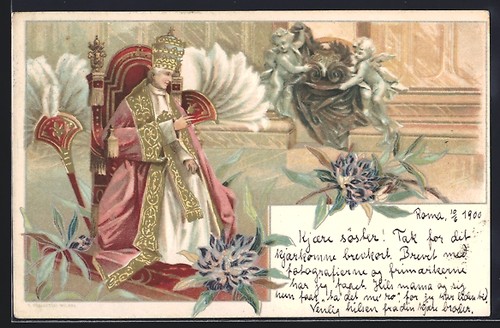 Roma, 10/2 1900
Kjære söster! Tak for dit
kjærkomne brevkort. Brevet med
fotografierne og frimærkerne
har jeg faaet. Hils mama og sig
hun faar "ta' det me' ro" for jeg
Venlig hilsen fra din kjære broder.